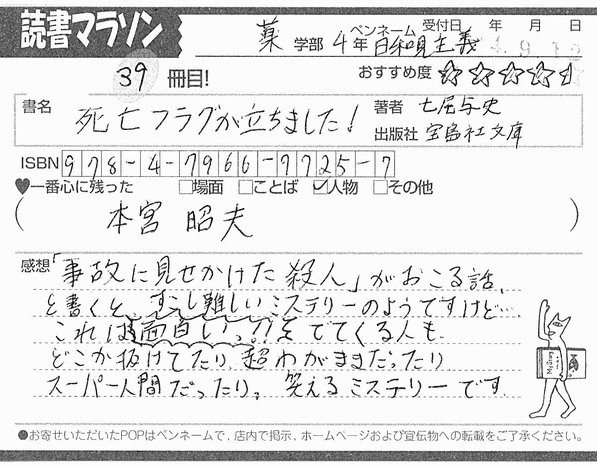 読書マラソン
薬 学部 4年 ペンネーム 日和現主義 受付日 年 月 日
39 冊目!
おすすめ度 ☆☆☆☆☆
書名 死亡フラグが立ちました!
著者 七尾与史
出版社 宝島社文庫
ISBN 978-4-7966-7725-7
♥一番心に残った □場面 □ことば ☑人物 □その他
( 本宮 昭夫 )
感想 「事故に見せかけた殺人」がおこる話、
と書くと、すこし難しいミステリーのようですけど…
これは面白いっ!! でてくる人も
どこか抜けてたり、超わがままだったり
スーパー人間だったり。笑えるミステリーです
●お寄せいただいたPOPはペンネームで、店内で掲示、ホームページおよび宣伝物への転載をご了承ください。